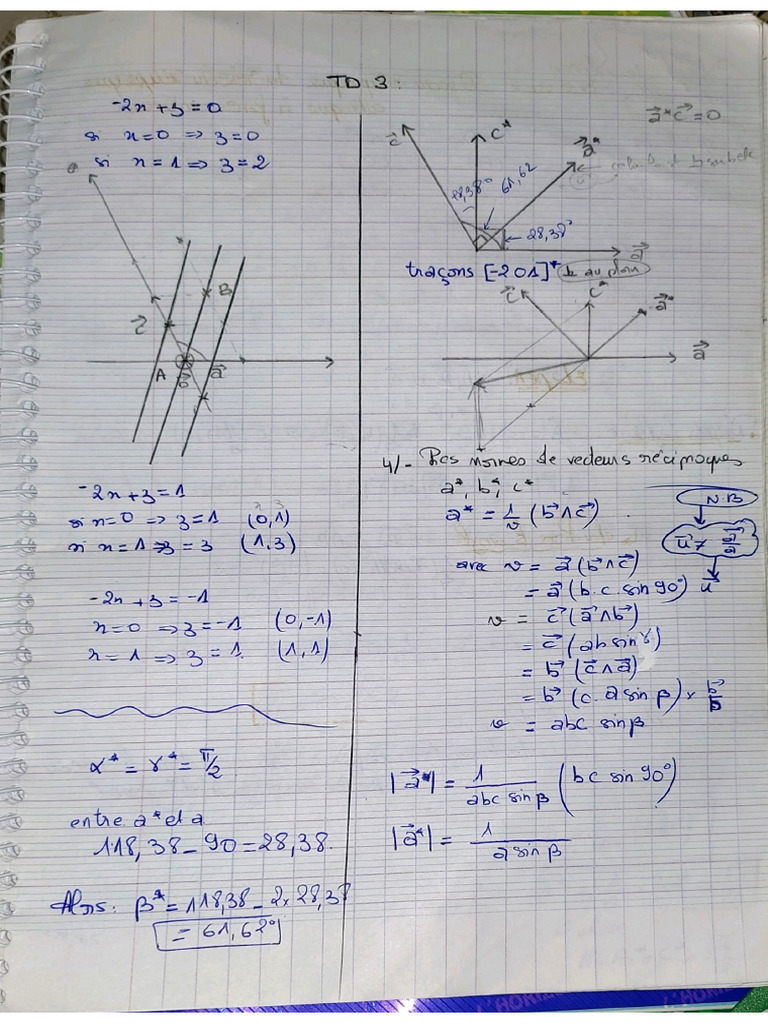 TD 3
-2x + z = 0
si x=0 => z=0
si x=1 => z=2
c
A
B
a
-2x + z = 1
si x=0 => z=1 (0,1)
si x=1 => z=3 (1,3)
-2x + z = -1
x=0 => z=-1 (0,-1)
x=1 => z=1 (1,1)
α* = γ* = π/2
entre a* et a
118,38 - 90 = 28,38.
Alors: β* = 118,38 - 2 x 28,38
= 61,62°
a* c = 0
c
c*
a*
28,38°
61,62
28,38°
a
traçons [-2 0 1]* au plan
c
c*
a*
a
4/- Les normes de vecteurs réciproques
a*, b*, c*
a* = 1/v (b ∧ c)
N.B
avec v = a (b ∧ c)
= a (b.c sin 90°) u
v = c (a ∧ b)
= c (ab sin γ)
= b (c ∧ a)
= b (c. a sin β) x b/b
v = abc sin β
|a*| = 1/(abc sin β) (bc sin 90°)
|a*| = 1/(a sin β)